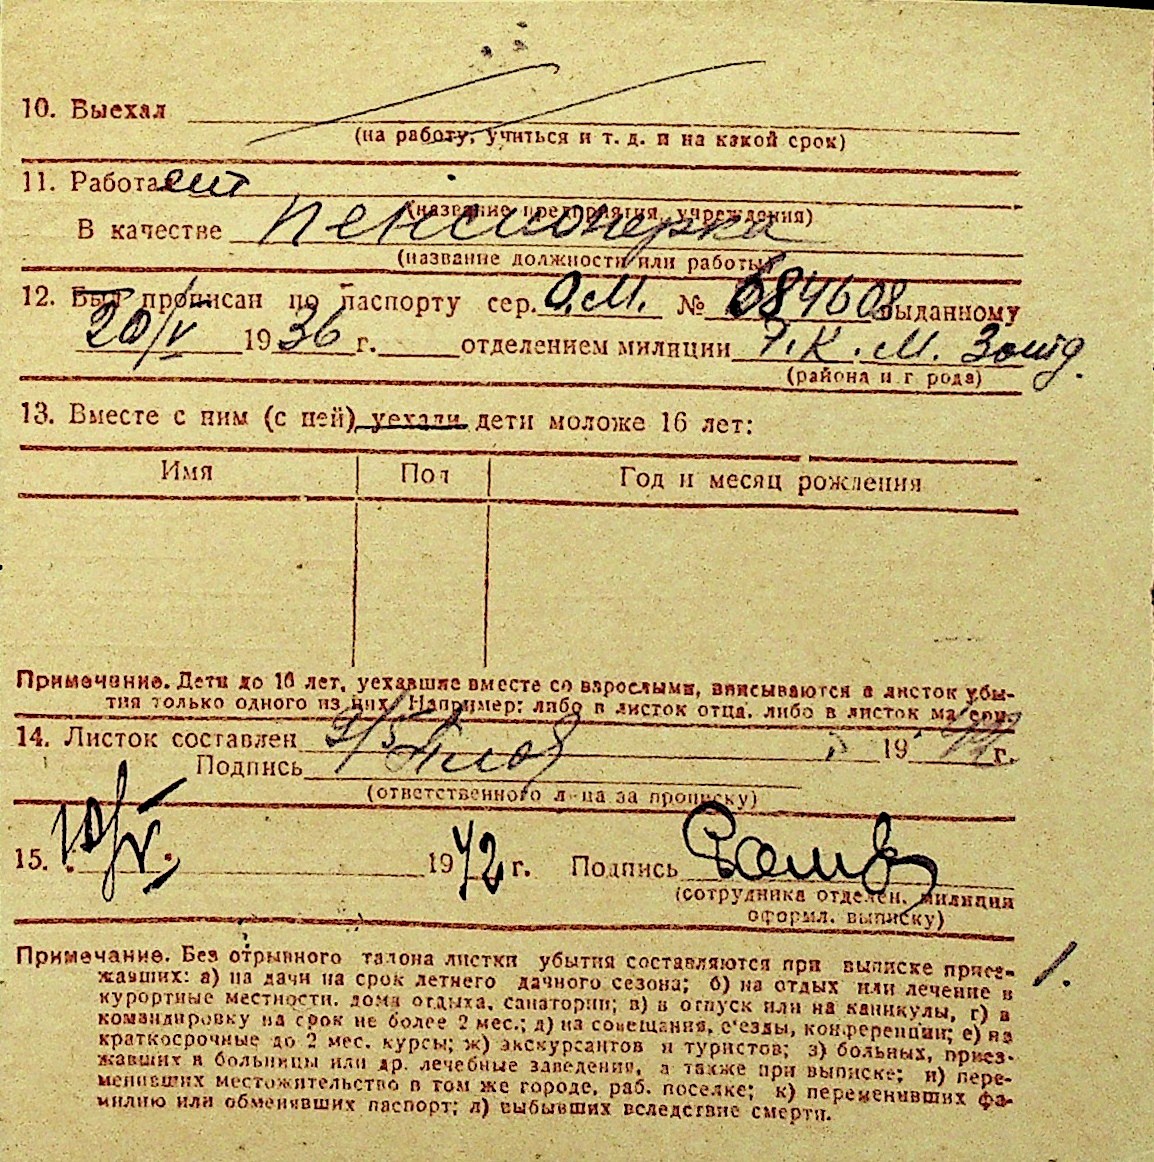 10. Выехал
(на работу, учиться и т. д. и на какой срок)
11. Работает
(название предприятия, учреждения)
В качестве пенсионерка
(название должности или работы)
12. Был прописан по паспорту сер. О.М. № 684608 выданному
20/V 1936 г. отделением милиции 7. К. М.
(района и города)
13. Вместе с ним (с ней) уехали дети моложе 16 лет:
Имя Пол Год и месяц рождения
Примечание. Дети до 16 лет, уехавшие вместе со взрослыми, вписываются в листок убы-
тия только одного из них. Например: либо в листок отца, либо в листок матери.
14. Листок составлен 9/5 19 г.
Подпись
(ответственного лица за прописку)
15. 10/V 1942 г. Подпись
(сотрудника отделен. милиции
оформл. выписку)
Примечание. Без отрывного талона листки убытия составляются при выписке приез-
жавших: а) на дачи на срок летнего дачного сезона; б) на отдых или лечение в
курортные местности, дома отдыха, санатории; в) в отпуск или на каникулы, г) в
командировку на срок не более 2 мес.; д) на совещания, с'езды, конференции; е) на
краткосрочные до 2 мес. курсы; ж) экскурсантов и туристов; з) больных, приез-
жавших в больницы или др. лечебные заведения, а также при выписке; и) пере-
менивших местожительство в том же городе, раб. поселке; к) переменивших фа-
милию или обменявших паспорт; л) выбывших вследствие смерти.
1.